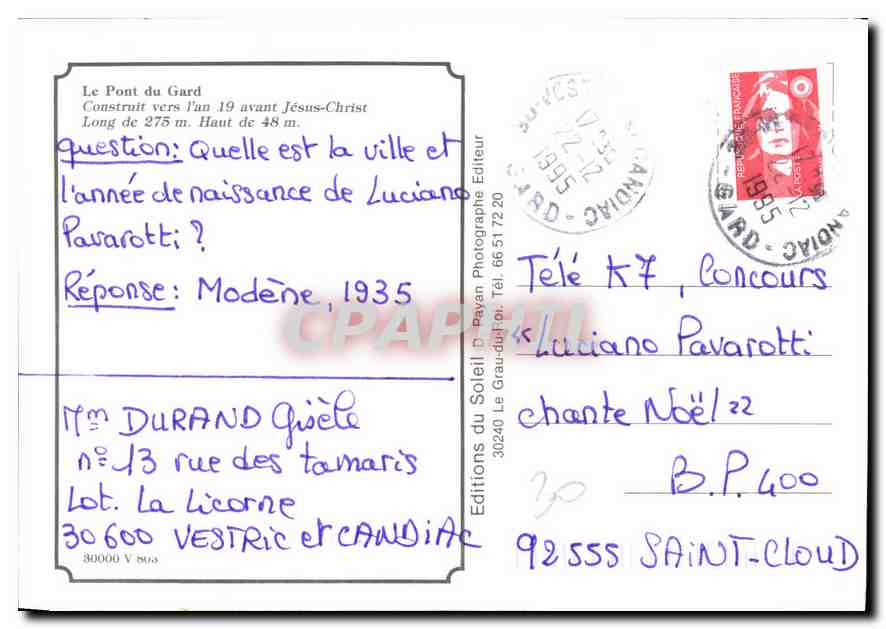 Le Pont du Gard
Construit vers l'an 19 avant Jésus-Christ
Long de 275 m. Haut de 48 m.
Question: Quelle est la ville et
l'année de naissance de Luciano
Pavarotti ?
Réponse: Modène, 1935
Mm DURAND Gisèle
n° 13 rue des tamaris
Lot. La Licorne
30600 VESTRIC et CANDIAC
30000 V 803
Editions du Soleil D. Payan Photographe Editeur
30240 Le Grau-du-Roi. Tél. 66 51 72 20
17H30
22-12
1995
CANDIAC
GARD
REPUBLIQUE FRANÇAISE
LA POSTE
22-12
1995
GARD - CANDIAC
Télé K7, Concours
"Luciano Pavarotti
chante Noël"
B.P. 400
92555 SAINT-CLOUD
30
CPAPHIL